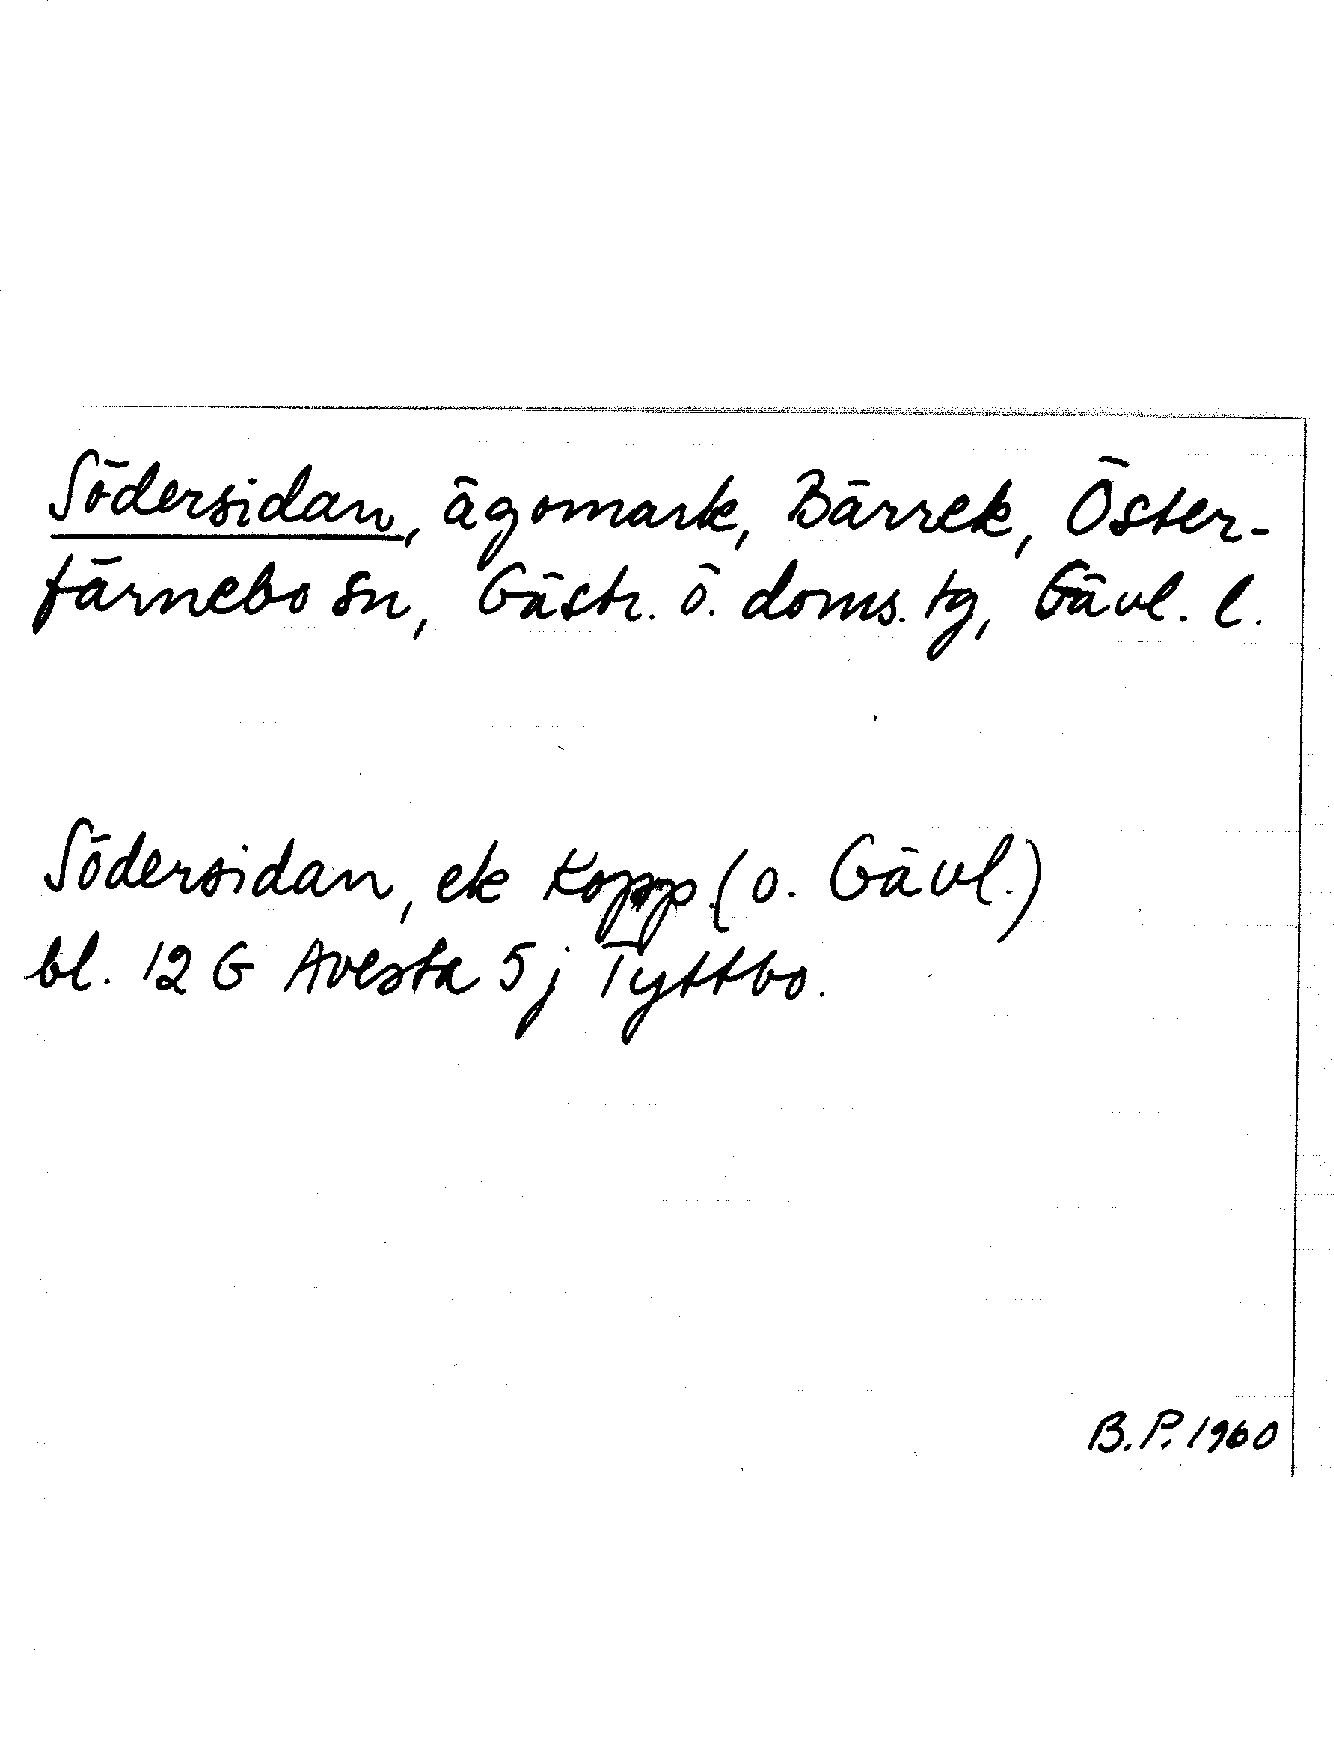 Södersidan, ägomark, Bärrek, Öster-
färnebo sn, Gästr. ö. doms. tg, Gävl. l.
Södersidan, ek Kopp (o. Gävl.)
bl. 12 G Avesta 5 j Tyttbo.
B.P. 1960